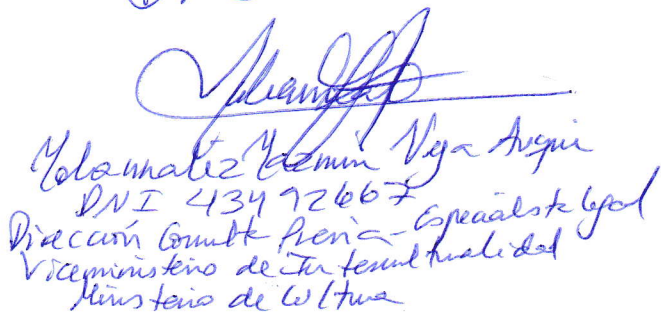 Yazmin Vega Auqui
DNI 43492667
Dirección Consulta Previa - Especialista legal
Viceministerio de Interculturalidad
Ministerio de Cultura